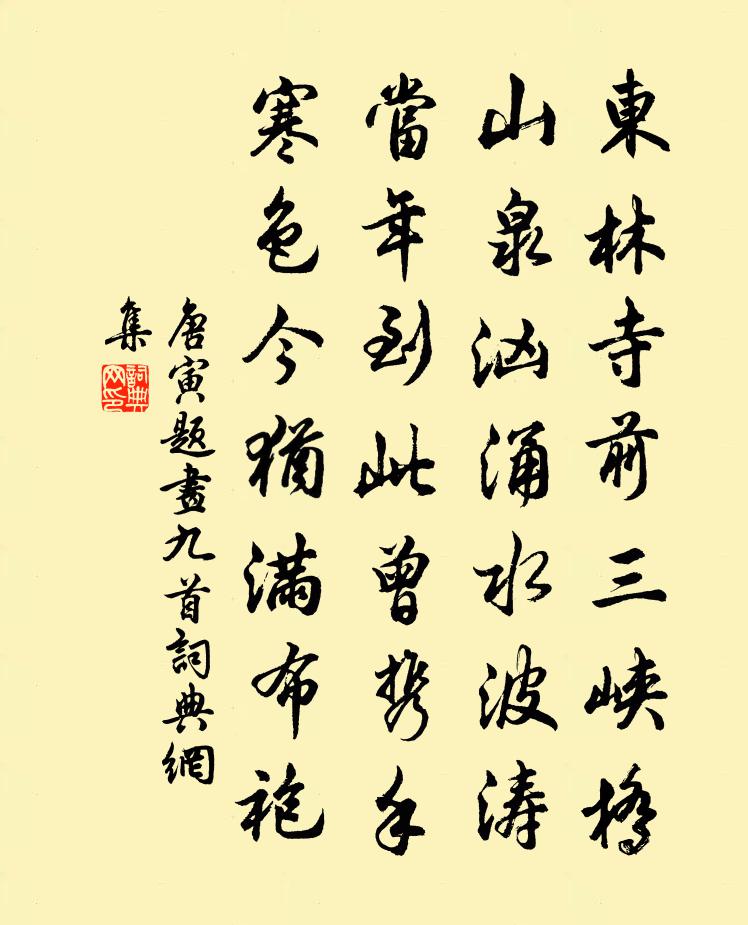 東林寺前三峽橋
山泉汹涌水波濤
當年到此曾携手
寒色今猶滿布袍
唐寅題畫九首詞典網
集
詞典網印